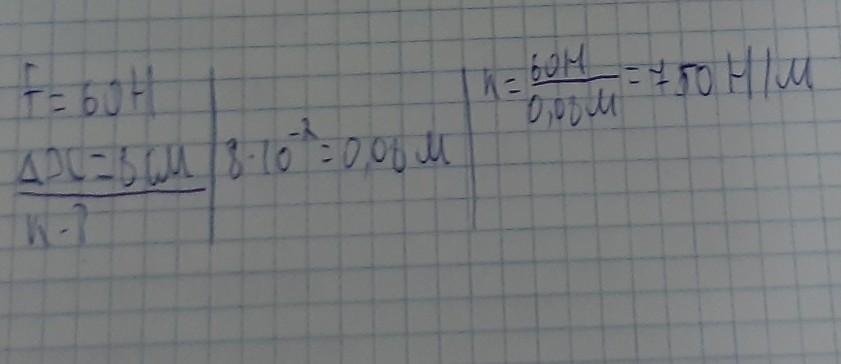 F = 60 Н
Δx = 8 см
k - ?
8·10⁻² = 0,08 м
k = 60Н / 0,08м = 750 Н/м